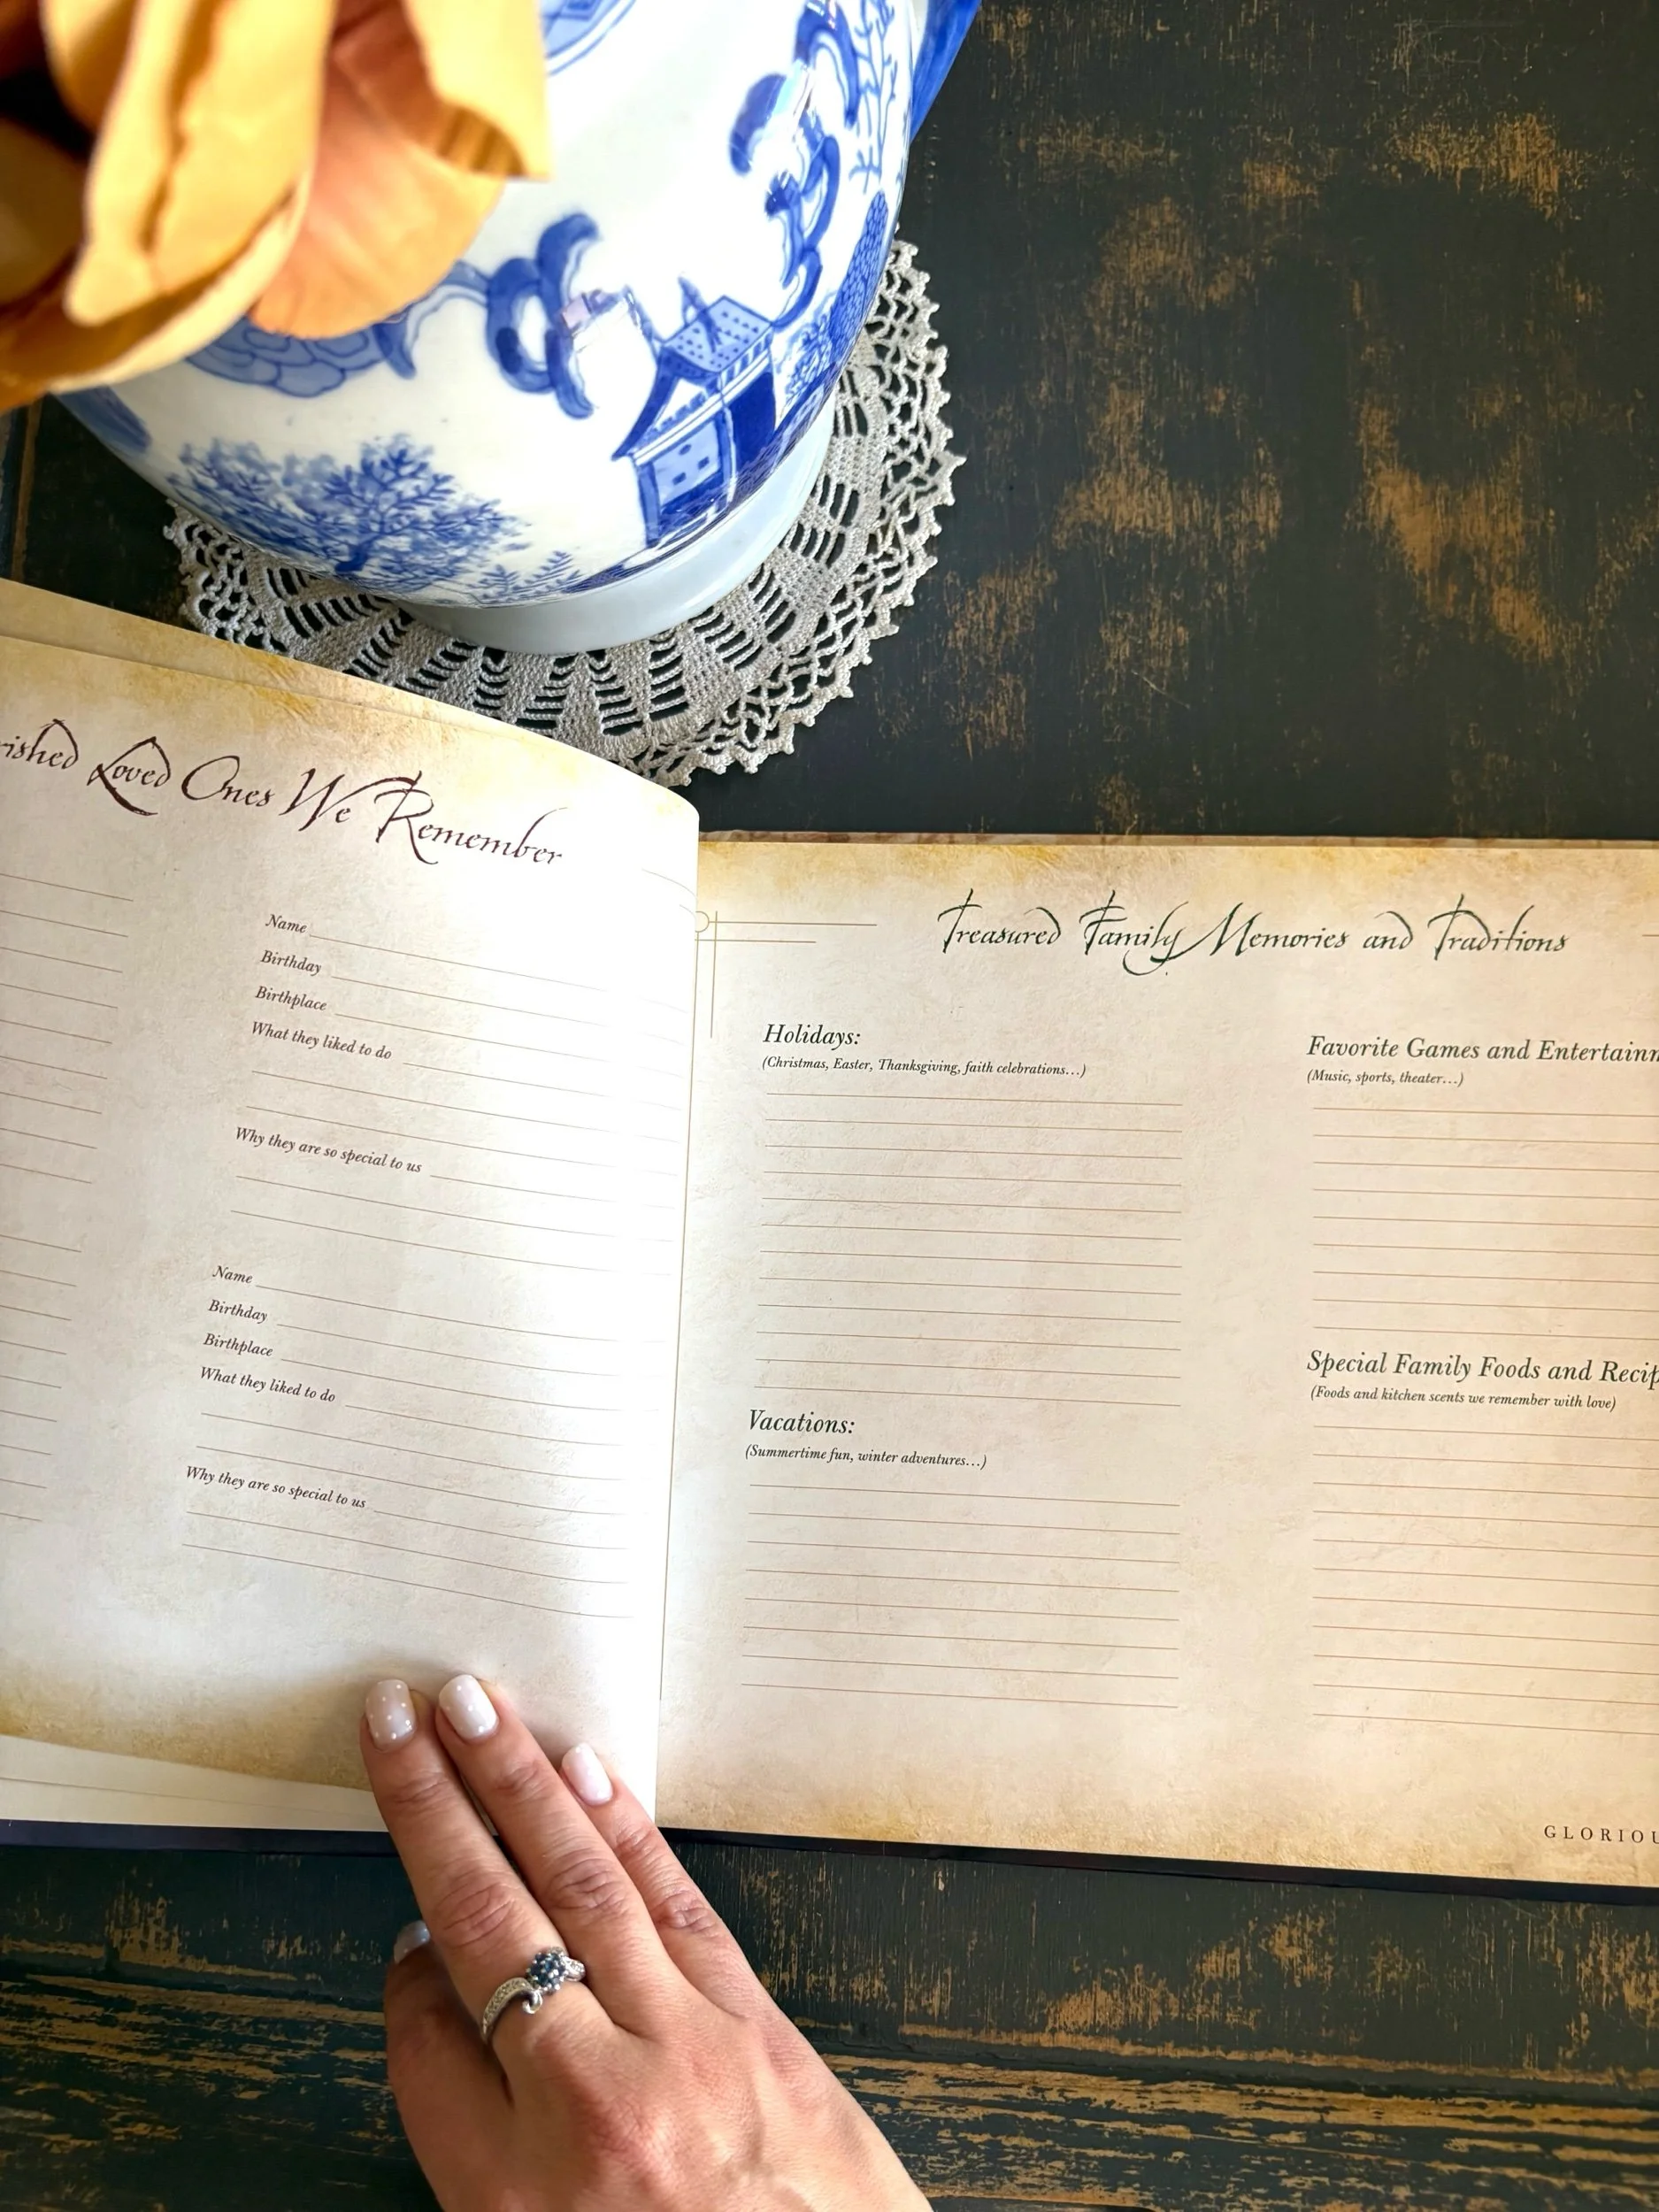 Loved Ones We Remember
Name
Birthday
Birthplace
What they liked to do
Why they are so special to us
Name
Birthday
Birthplace
What they liked to do
Why they are so special to us
Treasured Family Memories and Traditions
Holidays:
(Christmas, Easter, Thanksgiving, faith celebrations...)
Vacations:
(Summertime fun, winter adventures...)
Favorite Games and
(Music, sports, theater...)
Special Family Foods and
(Foods and kitchen scents we remember with love)